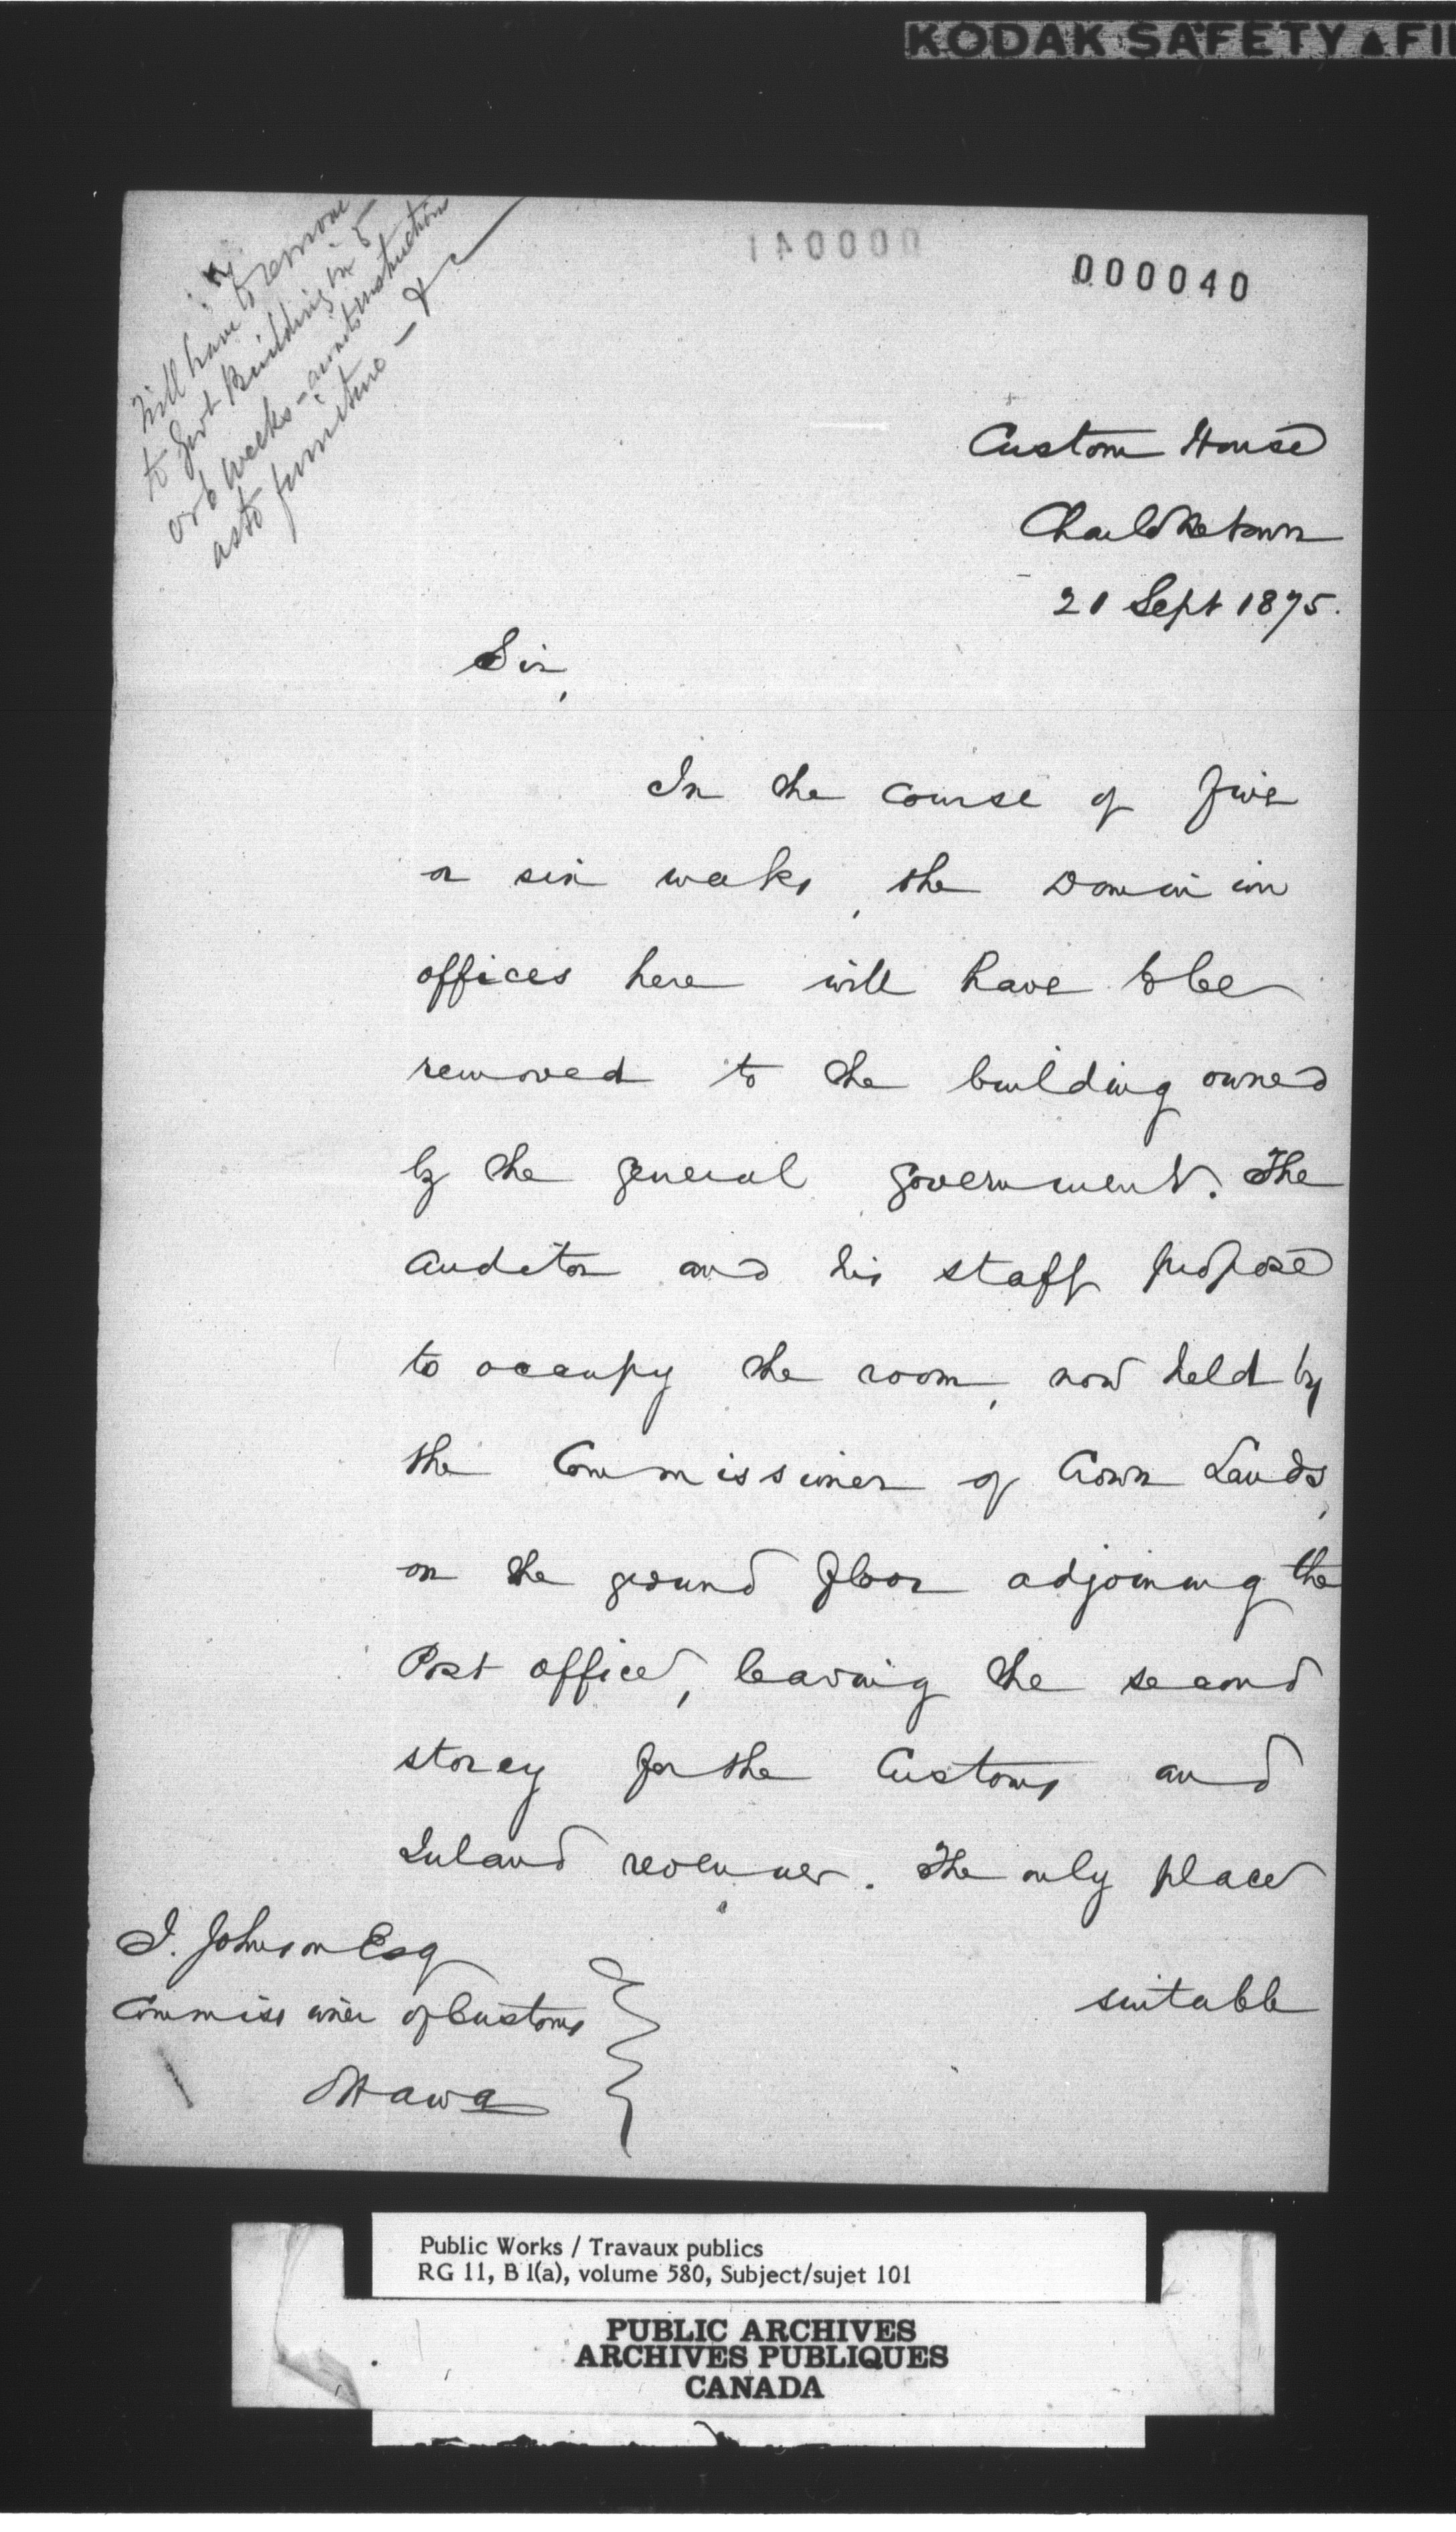 KODAK SAFETY ▲ FI
000040
Will have to remove
to Govt Building in 5
or 6 weeks - awaits instructions
as to furniture - &c
Custom House
Charlottetown
21 Sept 1875.
Sir,
In the course of five
or six weeks, the Dominion
offices here will have to be
removed to the building owned
by the general government. The
Auditor and his staff propose
to occupy the room, now held by
the Commissioner of Crown Lands,
on the ground floor adjoining the
Post office, leaving the second
storey for the Customs and
Inland revenues. The only place
suitable
J. Johnson Esq
Commissioner of Customs
Ottawa
Public Works / Travaux publics
RG 11, B 1(a), volume 580, Subject/sujet 101
PUBLIC ARCHIVES
ARCHIVES PUBLIQUES
CANADA